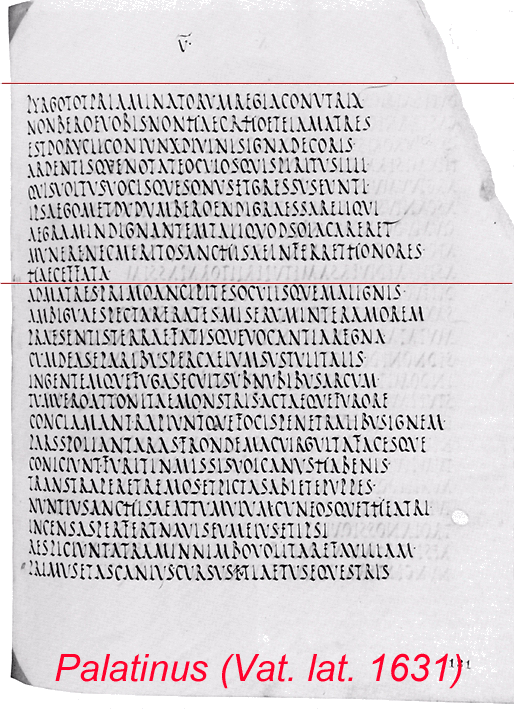 V
PYRGOTOTPRIAMINATORVMREGIACONVTRIX
NONBEROEVOBISNONHAECRHOETEIAMATRES
ESTDORYCLICONIVNXDIVINISIGNADECORIS
ARDENTISQVENOTATEOCVLOSQVISPIRITVSILLI
QVISVOLTVSVOCISQVESONVSETGRESSVSEVNTI
IPSAEGOMETDVDVMBEROENDIGRAESSARELIQVI
AEGRAMINDIGNANTEMTALIQVODSOLACARERET
MVNERENECMERITOSANCHISAEINFERRETHONORES·
HAECEFFATA·
ADMATRESPRIMOANCIPITESOCVLISQVEMALIGNIS·
AMBIGVAESPECTARERATESMISERVMINTERAMOREM
PRAESENTISTERRAEFATISQVEVOCANTIAREGNA
CVMDEASEPARIBVSPERCAELVMSVSTVLITALIS
INGENTEMQVEFVGASECVITSVBNVBIBVSARCVM·
TVMVEROATTONITAEMONSTRISACTAEQVEFVRORE
CONCLAMANTRAPIVNTQVEFOCISPENETRALIBVSIGNEM·
PARSSPOLIANTARASFRONDEMACVIRGVLTAFACESQVE
CONICIVNTFVRITINMISSISVOLCANVSHABENIS·
TRANSTRAPERETREMOSETPICTASABIETEPVPPES·
NVNTIVSANCHISAEATTVMVLVMCVNEOSQVETHEATRI·
INCENSASPERFERTNAVISEVMELVSETIPSI
RESPICIVNTATRAMINNIMBOVOLITAREFAVILLAM·
PRIMVSETASCANIVSCVRSVSVTLAETVSEQVESTRIS
Palatinus (Vat. lat. 1631)